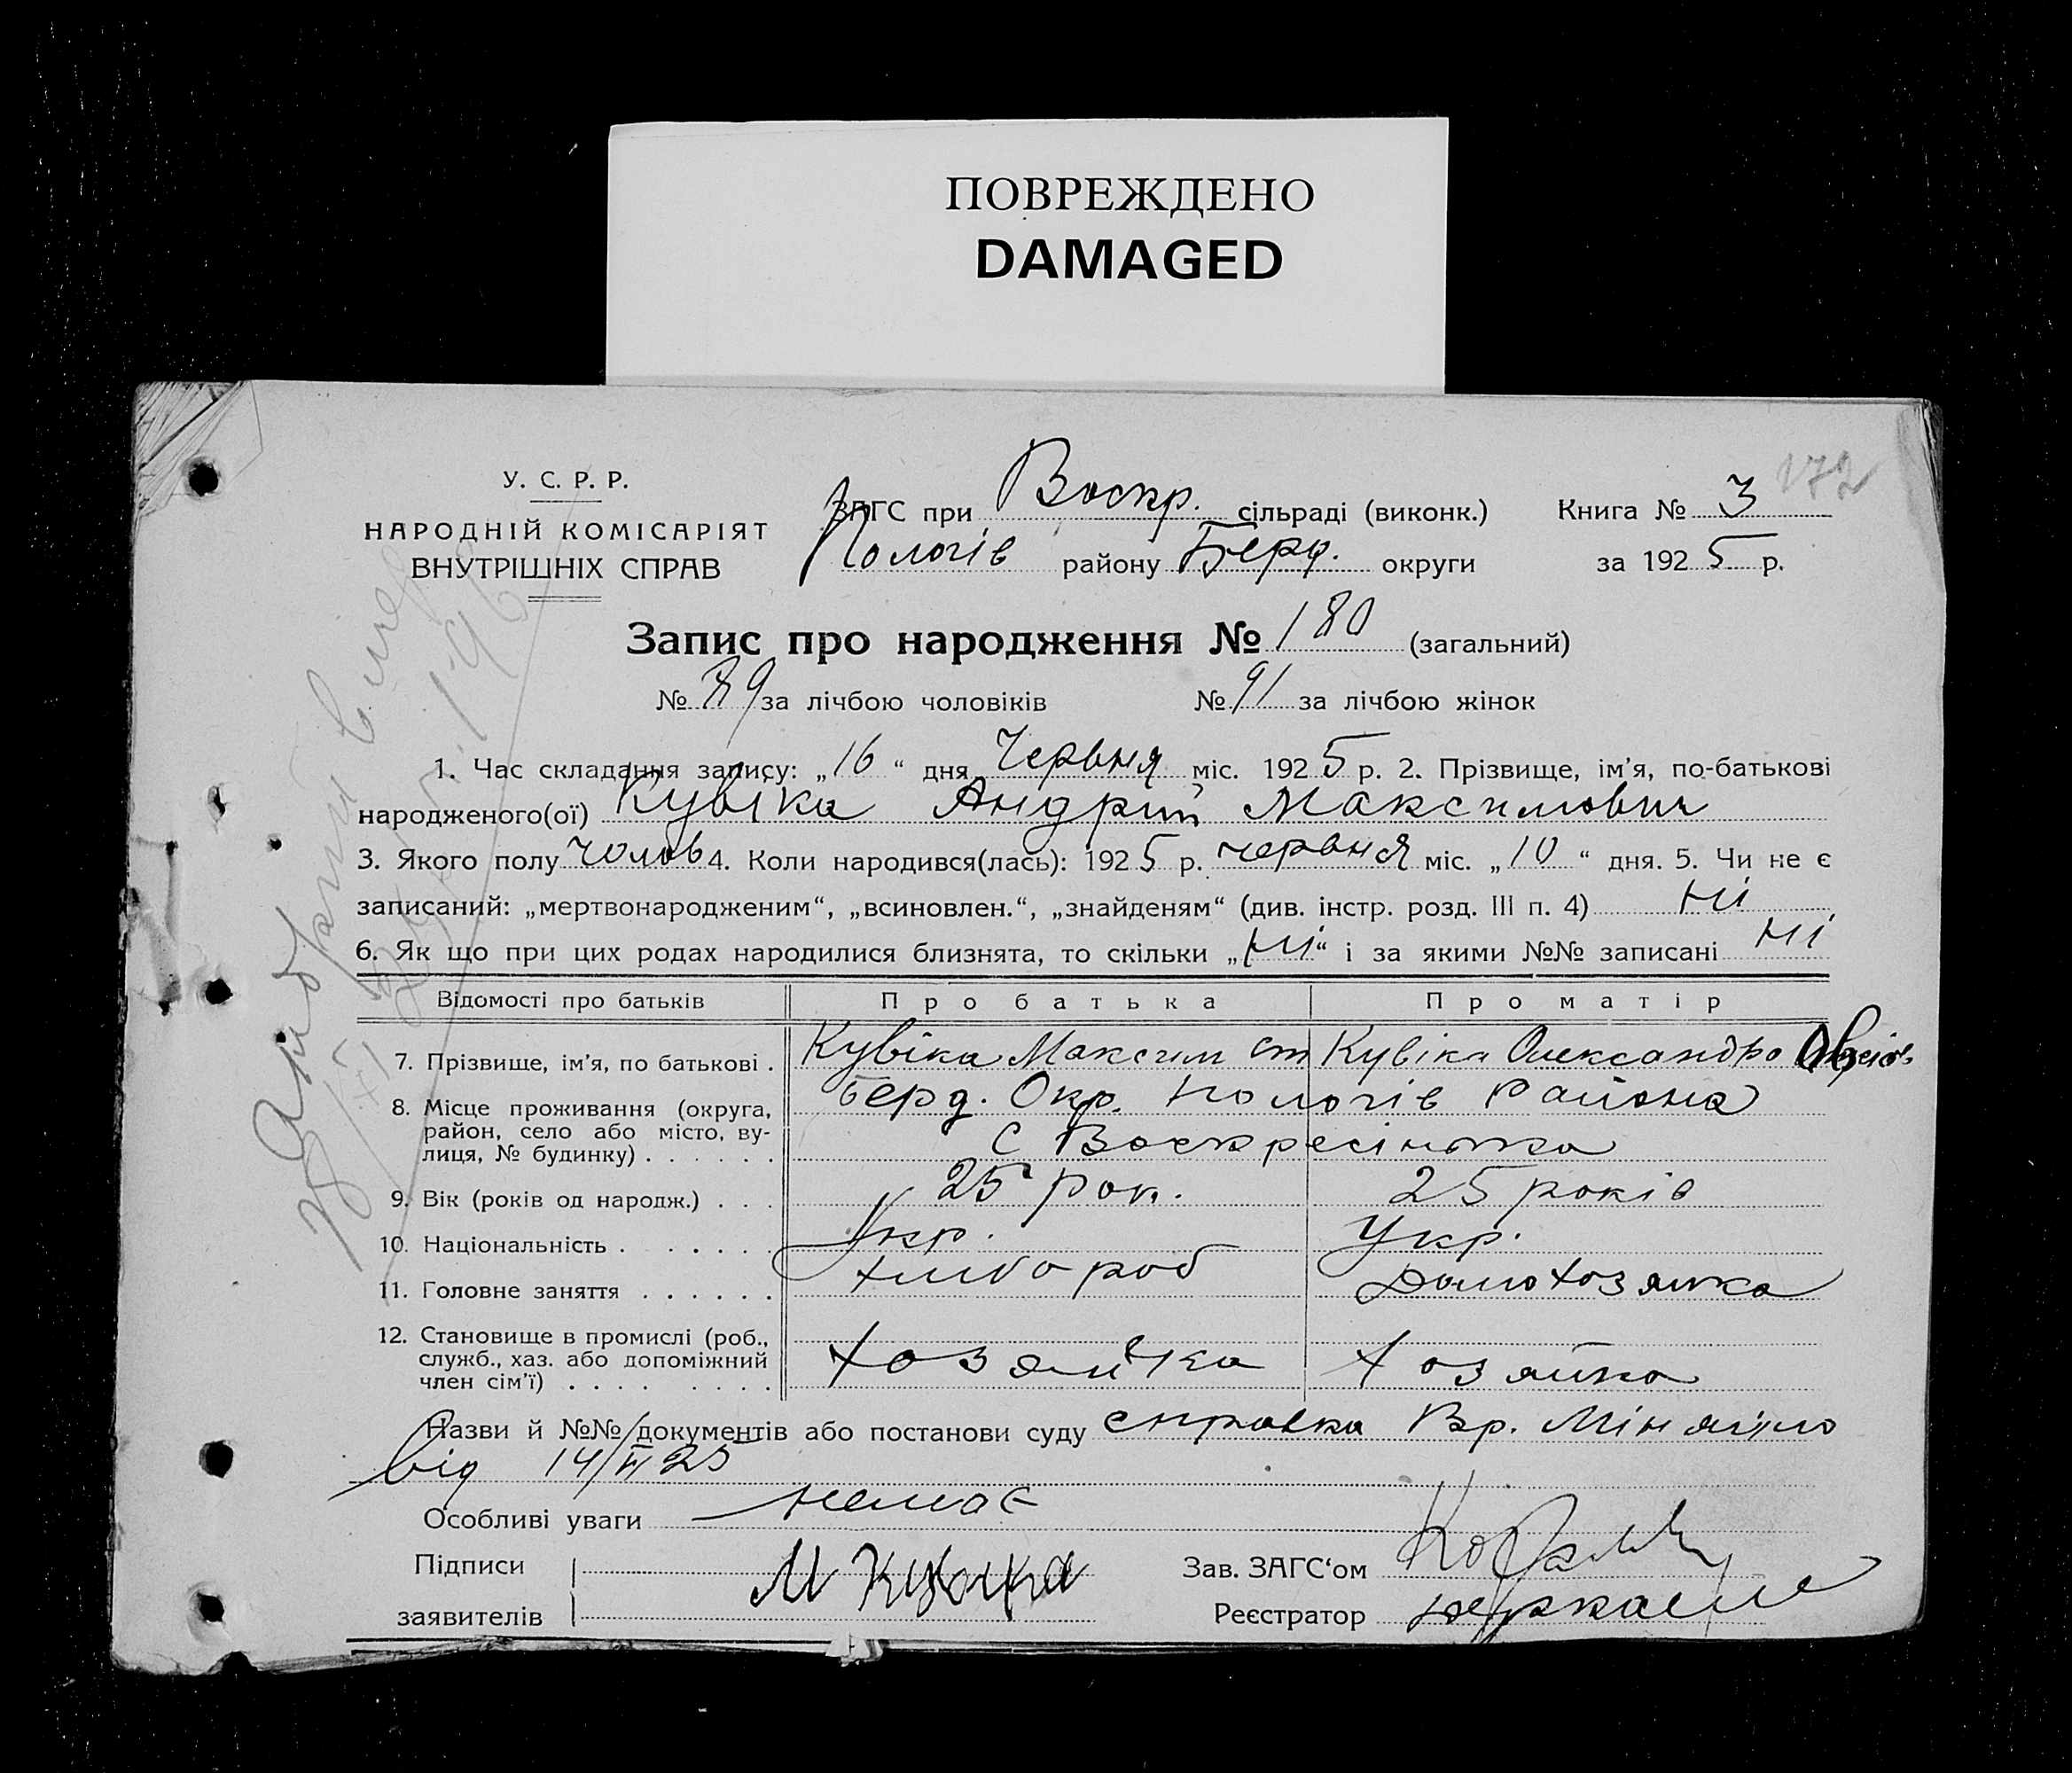 ПОВРЕЖДЕНО
DAMAGED
172
У. С. Р. Р.
НАРОДНІЙ КОМІСАРІЯТ
ВНУТРІШНІХ СПРАВ
ЗАГС при Воскр. сільраді (виконк.) Книга № 3
Пологів району Берд. округи за 1925 р.
Запис про народження № 180 (загальний)
№ 89 за лічбою чоловіків № 91 за лічбою жінок
1. Час складання запису: „16“ дня Червня міс. 1925 р. 2. Прізвище, ім'я, по-батькові
народженого(ої) Кувіка Андрій Максимович
3. Якого полу чолов 4. Коли народився(лась): 1925 р. червня міс. „10“ дня. 5. Чи не є
записаний: „мертвонародженим“, „всиновлен.“, „знайденям“ (див. інстр. розд. III п. 4) Ні
6. Як що при цих родах народилися близнята, то скільки „Ні“ і за якими №№ записані Ні
Відомості про батьків Про батька Про матір
7. Прізвище, ім'я, по батькові . Кувіка Максим Ст Кувіка Олександра
8. Місце проживання (округа, Берд. Окр. Пологів Района
район, село або місто, ву-
лиця, № будинку) . . . . . . С Воскресінька
9. Вік (років од народж.) . . . 25 рок. 25 років
10. Національність . . . . . . Укр. Укр.
11. Головне заняття . . . . . . хлибороб Домохозяйка
12. Становище в промислі (роб.,
служб., хаз. або допоміжний хозяйка хозяйка
член сім'ї) . . . . . . . .
Назви й №№ документів або постанови суду справка Вр.
від 14/VI 25
Особливі уваги немає
Підписи М Кувика Зав. ЗАГС'ом
заявителів Реєстратор